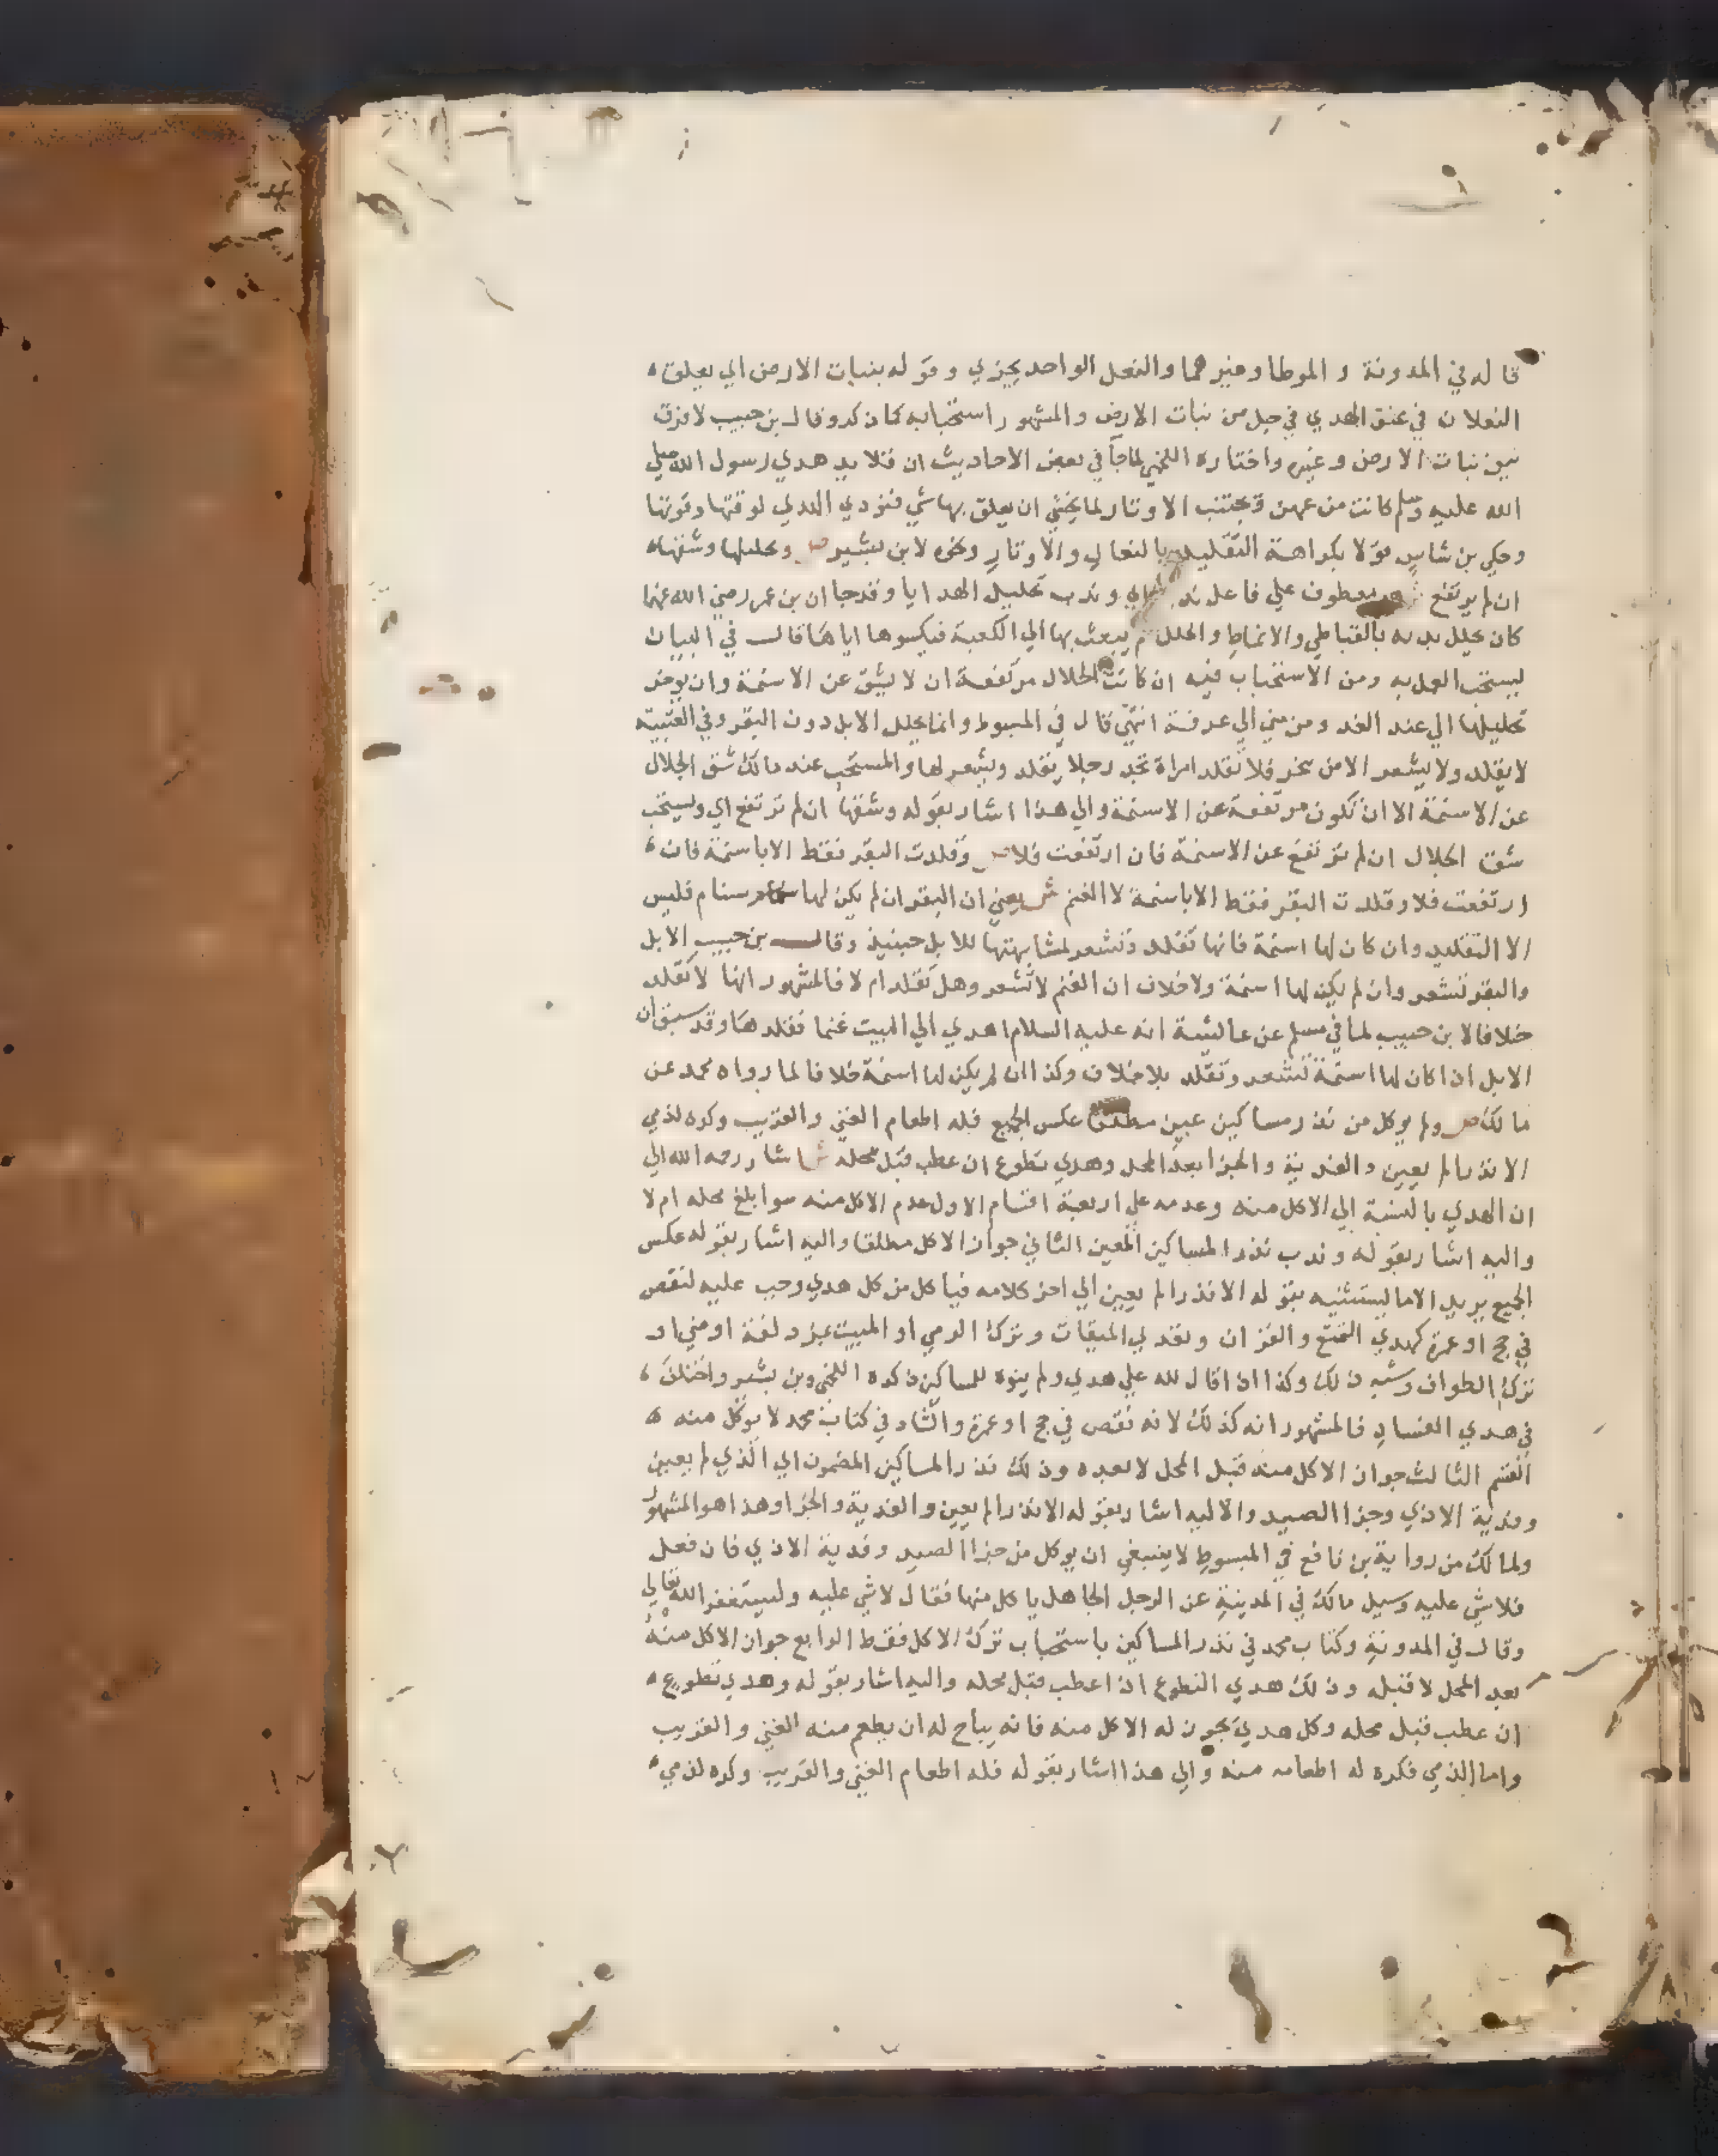 قاله في المدونة و الموطا وغيرهما والنعل الواحد يجزي وقوله بنبات الارض اي يعلق
النعلان في عنق الهدي في حبل من نبات الارض والمشهور استحبابه كما ذكر وقال بن حبيب لا فرق
بين نبات الارض وغيره واختاره اللخمي لما جآ في بعض الاحاديث ان قلايد هدي رسول الله صلي
الله عليه وسلم كانت من عهن وتجتنب الاوتار لما يخشي ان يعلق بها شي فتودي الهدي لرقتها وقوتها
وحكي بن شاس قولا بكراهة التقليد بالنعال والاوتار ونحوه لابن بشير ص وتجليلها وشقها
ان لم يرتفع ش هو معطوف علي فاعل ندب اي وندب تجليل الهدايا وقد جا ان بن عمر رضي الله عنهما
كان يجلل بدنه بالقباطي والانماط والحلل ثم يبعث بها الي الكعبة فيكسوها اياها قال في البيان
ليستحب العمل به ومن الاستحباب فيه ان كانت الجلال مرتفعة ان لا يشق عن الاسنمة وان يوخر
تجليلها الي عند الغد و من مني الي عرفة انتهي قال في المبسوط وانما يجلل الابل دون البقر وفي العتبية
لا يقلد ولا يشعر الا من ينحر فلا تقلد امراة تجد رجلا يقلد ويشعر لها والمستحب عند مالك شق الجلال
عن الاسنمة الا ان تكون مرتفعة عن الاسنمة والي هذا اشار بقوله وشقها ان لم ترتفع اي ويستحب
شق الجلال ان لم ترتفع عن الاسنمة فان ارتفعت فلا ص وقلدت البقر فقط الا باسنمة فان
ارتفعت فلا وقلدت البقر فقط الا باسنمة لا الغنم ش يعني ان البقر ان لم يكن لها سنام فليس
الا التقليد وان كان لها اسنمة فانها تقلد وتشعر لمشابهتها للابل حينيذ وقال بن حبيب الابل
والبقر تشعر وان لم يكن لها اسنمة ولا خلاف ان الغنم لا تشعر وهل تقلد ام لا فالمشهور انها لا تقلد
خلافا لابن حبيب لما في مسلم عن عايشة انه عليه السلام اهدي الي البيت غنما فقلدها وقد سبق ان
الابل اذا كان لها اسنمة تشعر وتقلد بلا خلاف وكذا ان لم يكن لها اسنمة خلافا لما رواه محمد عن
مالك ص ولم يوكل من نذر مساكين عين مطلقا عكس الجميع فله اطعام الغني والقريب وكره لذمي
الا نذرا لم يعين والفدية والجزا بعد المحل وهدي تطوع ان عطب قبل محله ش اشار رحمه الله الي
ان الهدي بالنسبة الي الاكل منه وعدمه علي اربعة اقسام الاول عدم الاكل منه سوا بلغ محله ام لا
واليه اشار بقوله وندب نذر المساكين المعين الثاني جواز الاكل مطلقا واليه اشار بقوله عكس
الجميع يريد الا ما يستثنيه بقوله الا نذرا لم يعين الي اخر كلامه فياكل من كل هدي وجب عليه لنقص
في حج او عمرة كهدي التمتع والقران وتعدي الميقات وترك الرمي او المبيت بمزدلفة او مني او
ترك الطواف وشبه ذلك وكذا اذا قال لله علي هدي ولم ينوه للمساكين ذكره اللخمي وبن بشير واختلف
في هدي الفساد فالمشهور انه كذلك لانه نقص في حج او عمرة والشاذ في كتاب محمد لا يوكل منه
القسم الثالث جواز الاكل منه قبل المحل لا بعده وذلك نذر المساكين المضمون اي الذي لم يعين
وفدية الاذي وجزا الصيد والا ليه اشار بقوله الا نذرا لم يعين والفدية والجزا وهذا هو المشهور
ولمالك من رواية بن نافع في المبسوط لا ينبغي ان يوكل من جزا الصيد وفدية الاذي فان فعل
فلا شي عليه وسيل مالك في المدينة عن الرجل الجاهل ياكل منها فقال لا شي عليه وليستغفر الله تعالي
وقال في المدونة وكتاب محمد في نذر المساكين باستحباب ترك الاكل فقط الرابع جواز الاكل منه
بعد المحل لا قبله وذلك هدي التطوع اذا عطب قبل محله واليه اشار بقوله وهدي تطوع
ان عطب قبل محله وكل هدي يجوز له الاكل منه فانه يباح له ان يطعم منه الغني والقريب
واما الذمي فكره له اطعامه منه والي هذا اشار بقوله فله اطعام الغني والقريب وكره لذمي